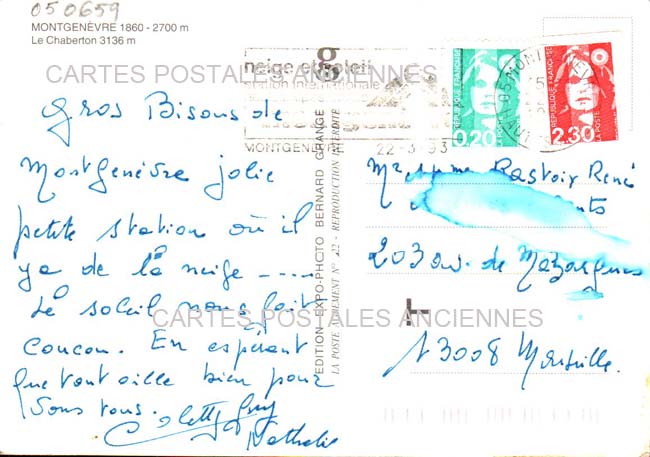 050659
MONTGENÈVRE 1860 - 2700 m
Le Chaberton 3136 m
neige et soleil
station internationale
MONTGENÈVRE
22-3-93
RÉPUBLIQUE FRANÇAISE
0,20
LA POSTE
RÉPUBLIQUE FRANÇAISE
2,30
LA POSTE
CARTES POSTALES ANCIENNES
Gros Bisous de
Montgenèvre jolie
petite station où il
ya de la neige -----
Le soleil nous fait
coucou. En espérant
que tout aille bien pour
vous tous.
Colette Guy
Nathalie
EDITION EXPO-PHOTO BERNARD GRANGE
REPRODUCTION INTERDITE
Mr et Mme Pastoir René
203 av. de Mazargues
13008 Marseille.
CARTES POSTALES ANCIENNES